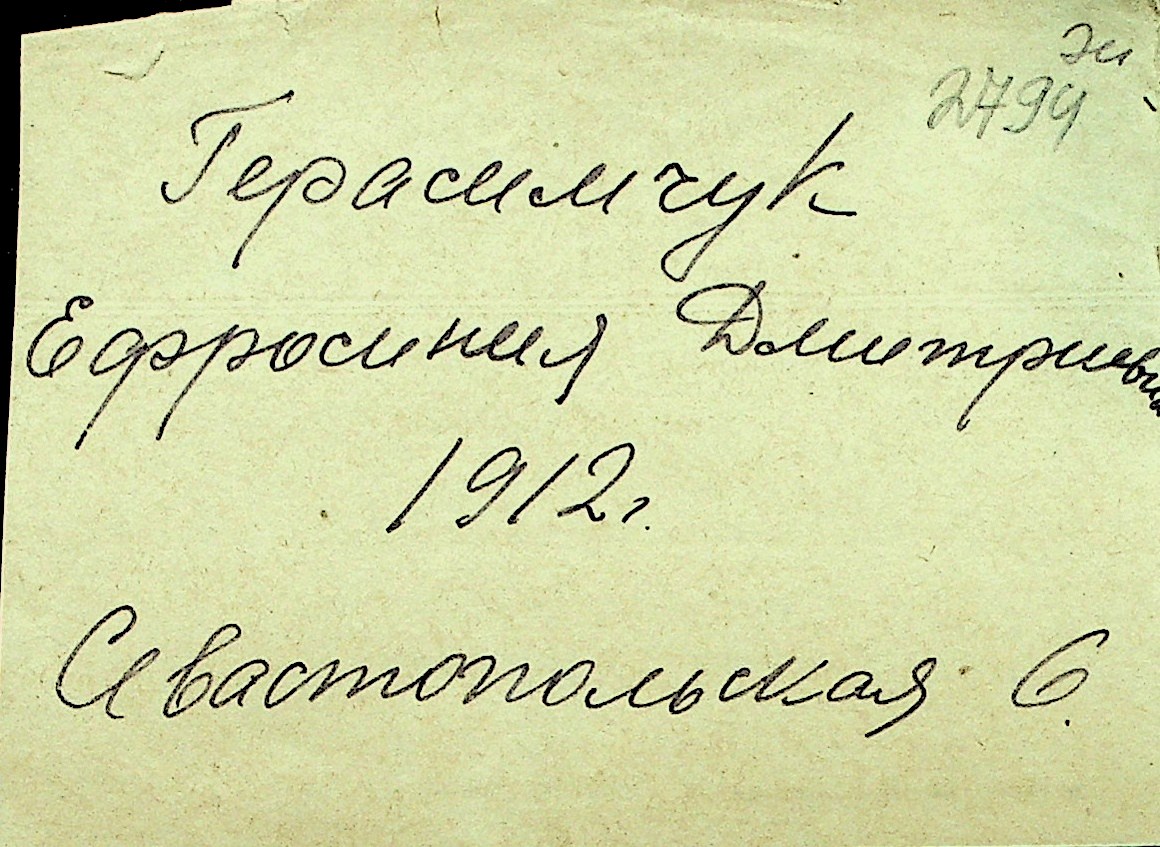 эи
2794
Герасимчук
Ефросиния Дмитриевна
1912г.
Севастопольская 6.